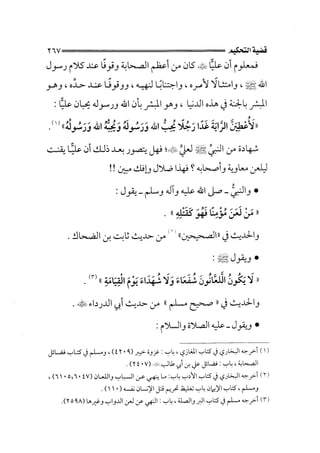 قضية التحكيم ٢٦٧
فمعلوم أن عليًّا ﷺ كان من أعظم الصحابة وقوفًا عند كلام رسول
الله ﷺ ، وامتثالًا لأمره ، واجتنابًا لنهيه ، ووقوفًا عند حدّه ، وهو
المبشر بالجنة في هذه الدنيا ، وهو المبشر بأن الله ورسوله يحبان عليًّا :
«لَأُعْطِيَنَّ الرَّايَةَ غَدًا رَجُلًا يُحِبُّ اللهَ وَرَسُولَهُ وَيُحِبُّهُ اللهُ وَرَسُولُهُ» (١) .
شهادة من النبيّ ﷺ لعليّ ؛ فهل يتصور بعد ذلك أن عليًّا يقنت
ليلعن معاوية وأصحابه ؟ فهذا ضلال وإفك مبين !!
● والنبيُّ - صلى الله عليه وآله وسلم - يقول :
« مَنْ لَعَنَ مُؤْمِنًا فَهُوَ كَقَتْلِهِ » .
والحديث في «الصحيحين» (٢) من حديث ثابت بن الضحاك .
● ويقول ﷺ :
« لَا يَكُونُ اللَّعَّانُونَ شُفَعَاءَ وَلَا شُهَدَاءَ يَوْمَ الْقِيَامَةِ » (٣) .
والحديث في « صحيح مسلم » من حديث أبي الدرداء .
● ويقول - عليه الصلاة والسلام :
(١) أخرجه البخاري في كتاب المغازي ، باب : غزوة خيبر (٤٢٠٩) ، ومسلم في كتاب فضائل
الصحابة ، باب : فضائل علي بن أبي طالب (٢٤٠٧) .
(٢) أخرجه البخاري في كتاب الأدب باب : ما ينهى عن السباب واللعان (٦٠٤٧ ، ٦١٠٥) ،
ومسلم ، كتاب الإيمان باب تغليظ تحريم قتل الإنسان نفسه (١١٠) .
(٣) أخرجه مسلم في كتاب البر والصلة ، باب : النهي عن لعن الدواب وغيرها (٢٥٩٨) .